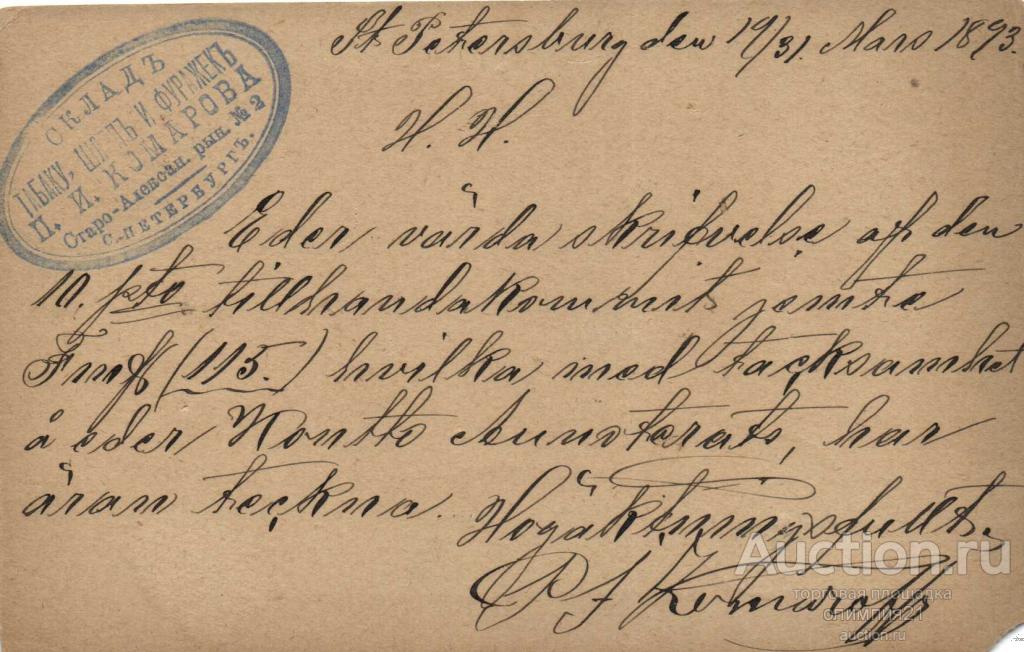 St Petersburg den 19/31. Mars 1893.
H. H.
СКЛАДЪ
ТАБАКУ, ШЛЯПЪ И ФУРАЖЕКЪ
П. И. КОМАРОВА
Старо-Алексан. рын. № 2
С.-ПЕТЕРБУРГЪ.
Eder värda skrifvelse af den
10. psto tillhandakommit jemte
Fmk (115.) hvilka med tacksamhet
å eder Kontto har
äran teckna.
Högaktningsfullt.
P J Komaroff
Auction.ru
торговая площадка
олимпия21
auction.ru